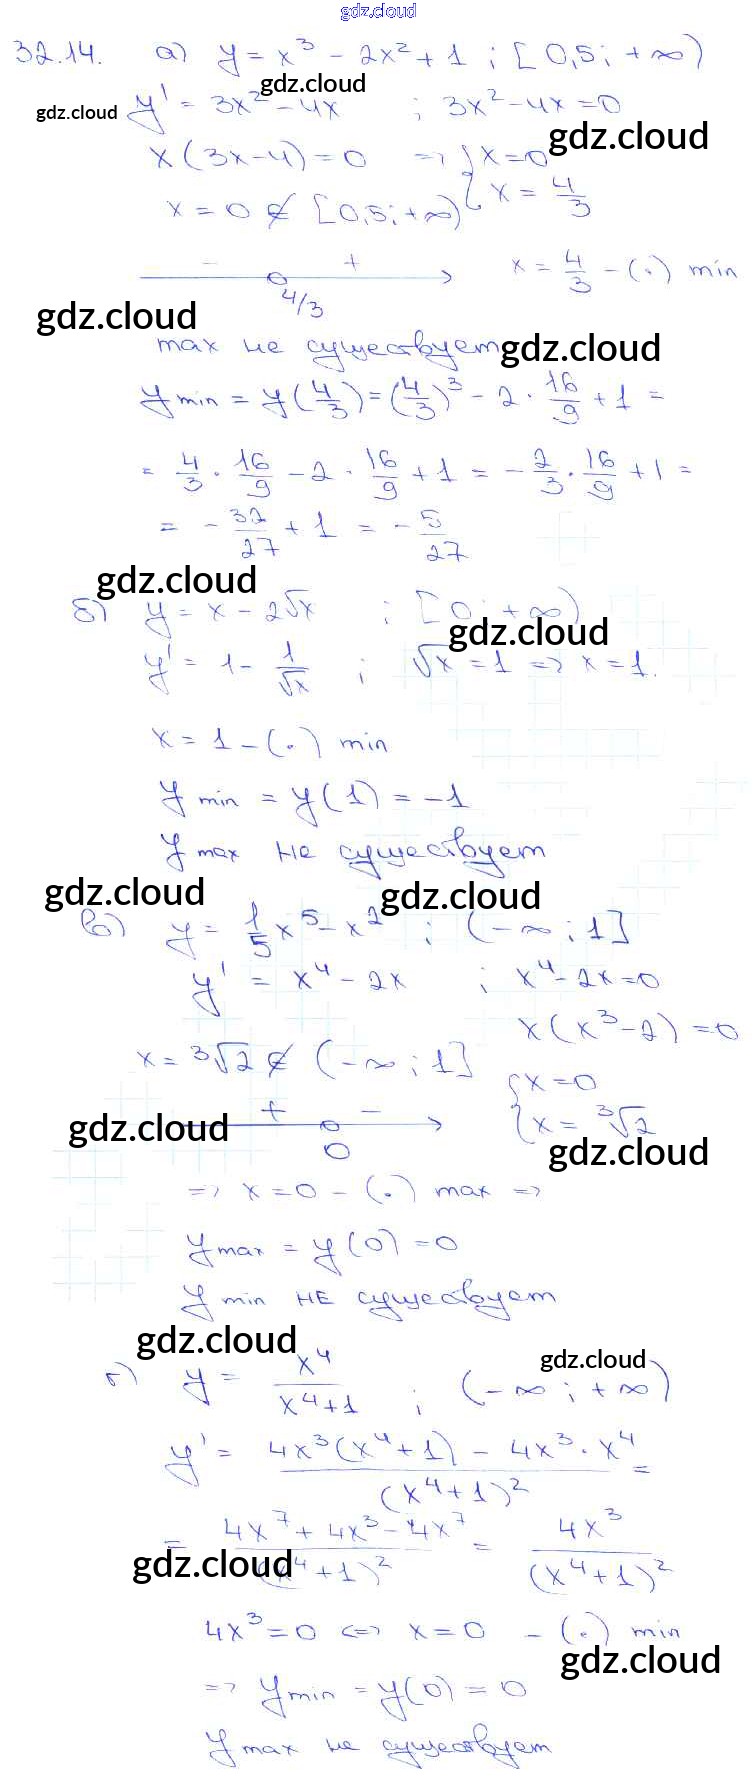 gdz.cloud
32.14. а) y = x³ - 2x² + 1 ; [0,5; +∞)
gdz.cloud
gdz.cloud y' = 3x² - 4x ; 3x² - 4x = 0
gdz.cloud
x(3x-4) = 0 => { x = 0
x = 4/3
x = 0 ∉ [0,5; +∞)
- + x = 4/3 - (.) min
4/3
gdz.cloud
max не существует gdz.cloud
y min = y(4/3) = (4/3)³ - 2 · 16/9 + 1 =
= 4/3 · 16/9 - 2 · 16/9 + 1 = - 2/3 · 16/9 + 1 =
= - 32/27 + 1 = - 5/27
gdz.cloud
б) y = x - 2√x ; [0; +∞)
gdz.cloud
y' = 1 - 1/√x ; √x = 1 => x = 1.
x = 1 - (.) min
y min = y(1) = -1
y max не существует
gdz.cloud gdz.cloud
в) y = 1/5 x⁵ - x² ; (-∞; 1]
y' = x⁴ - 2x ; x⁴ - 2x = 0
x(x³ - 2) = 0
x = ³√2 ∉ (-∞; 1] { x = 0
x = ³√2
+ -
0
gdz.cloud gdz.cloud
=> x = 0 - (.) max =>
y max = y(0) = 0
y min не существует
gdz.cloud gdz.cloud
г) y = x⁴/(x⁴+1) ; (-∞; +∞)
y' = (4x³(x⁴+1) - 4x³ · x⁴)/(x⁴+1)² =
= (4x⁷ + 4x³ - 4x⁷)/(x⁴+1)² = 4x³/(x⁴+1)²
gdz.cloud gdz.cloud
4x³ = 0 <=> x = 0 - (.) min
gdz.cloud
=> y min = y(0) = 0
y max не существует